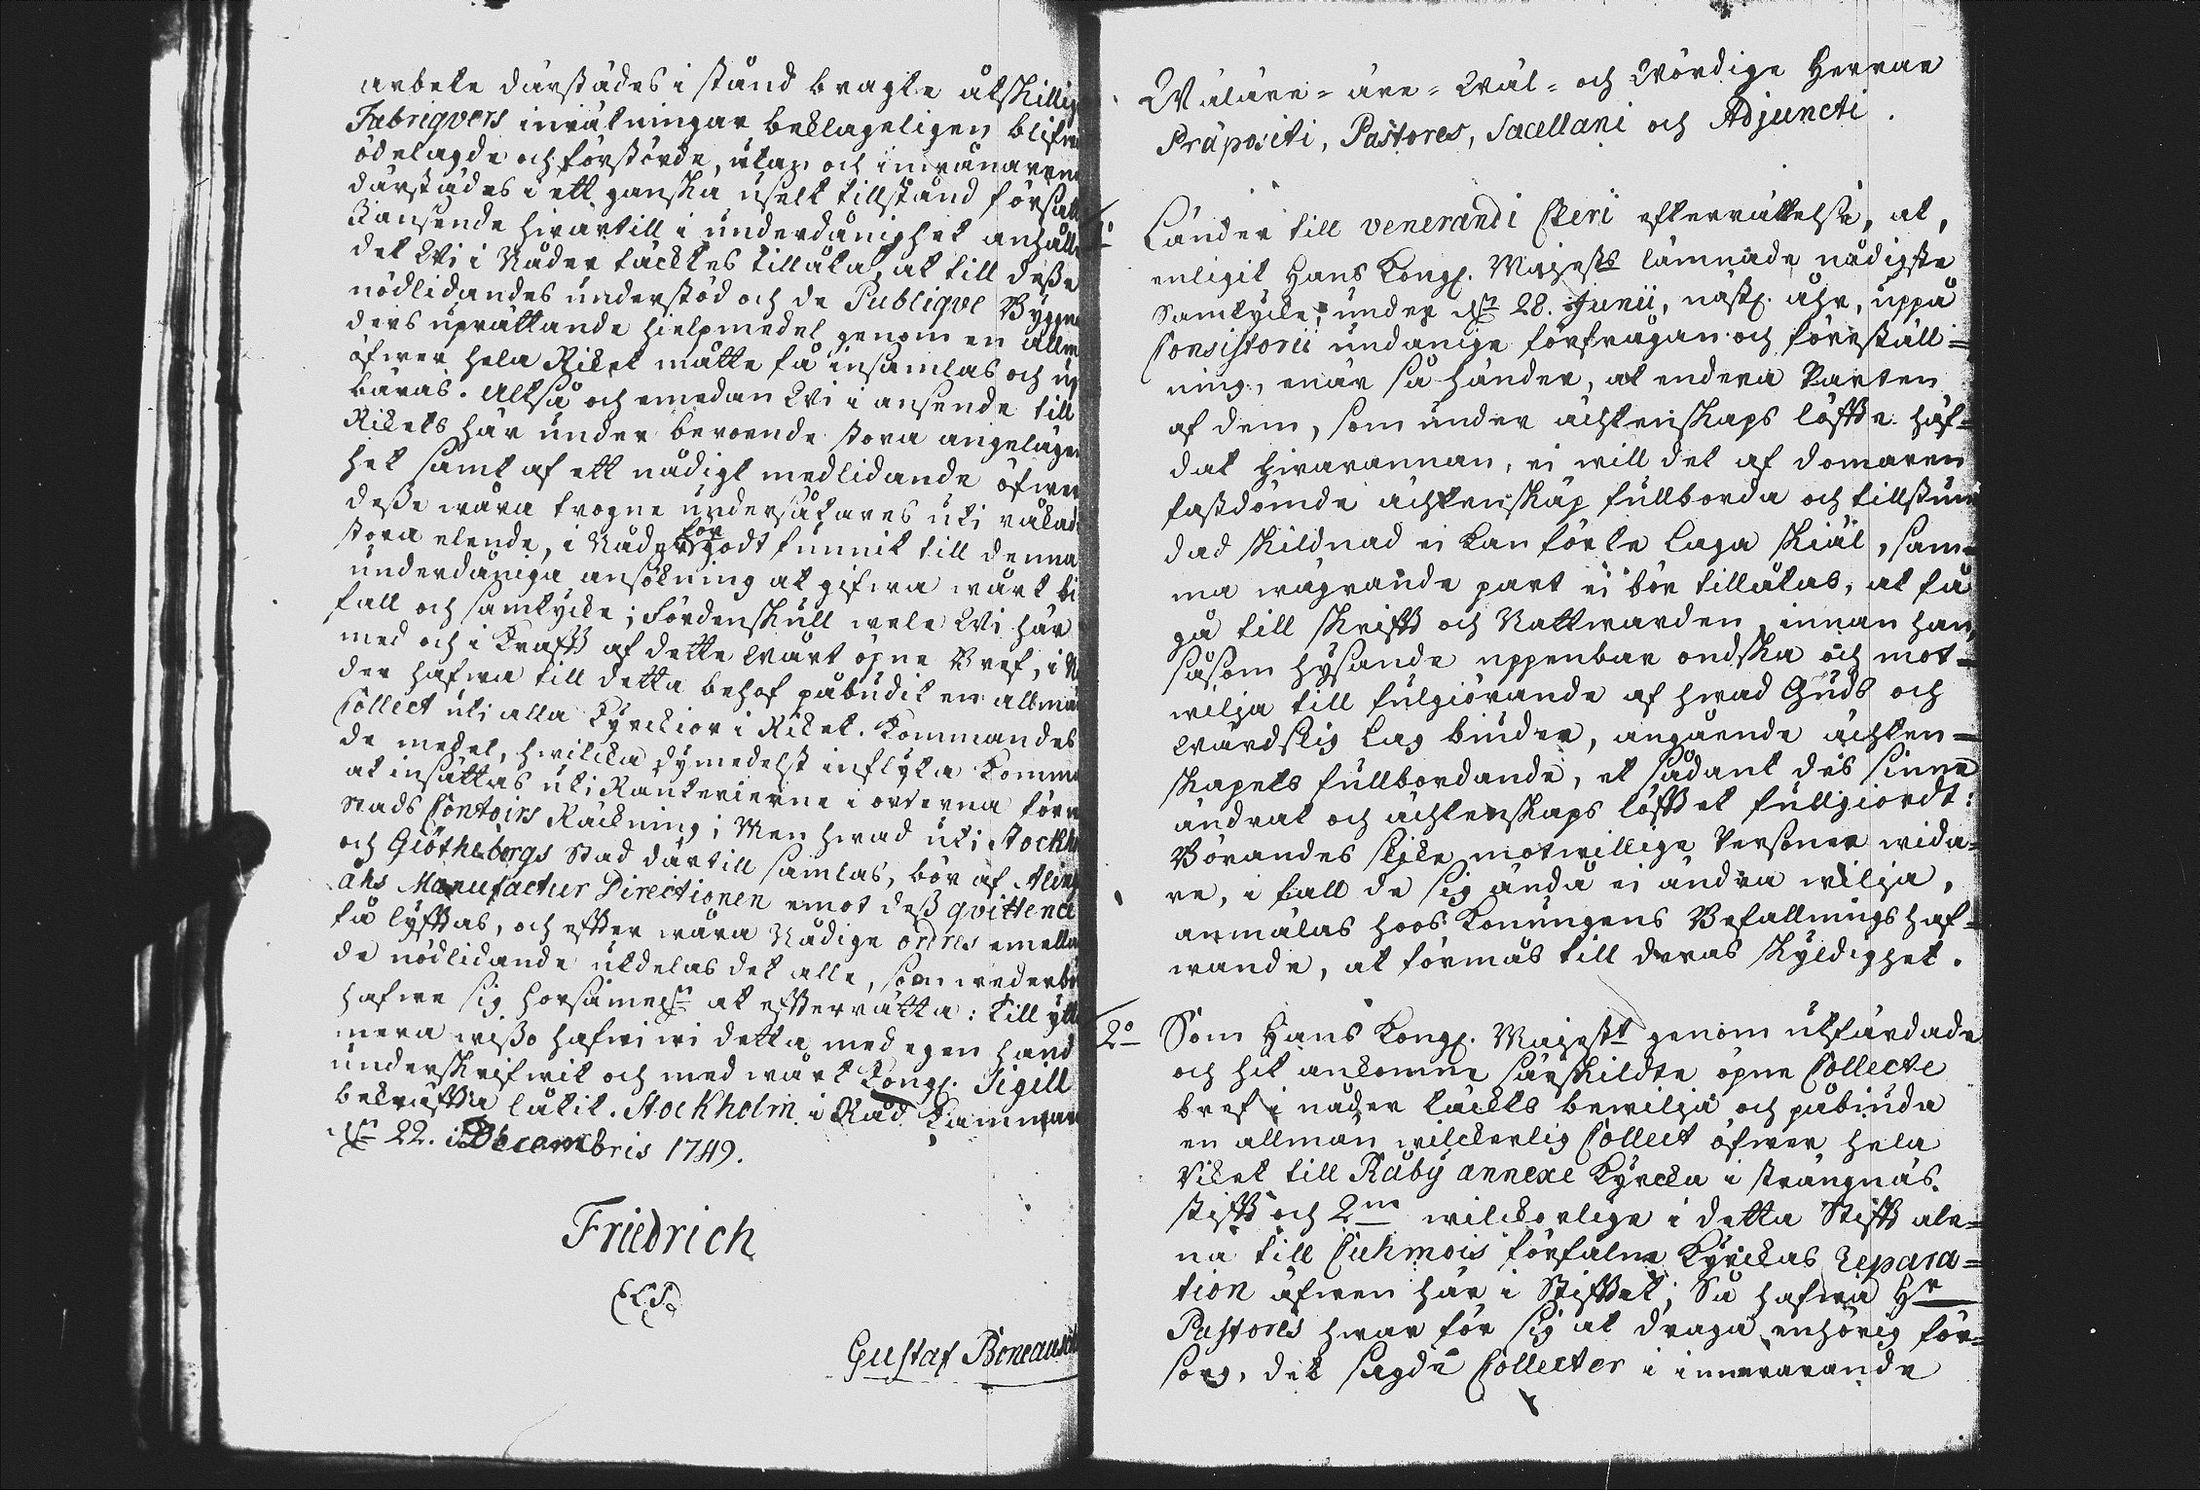 arbete därstädes i stånd bragte åtskillig
Fabriqvers inrätningar beklageligen blifwi
ödelagde och förstörde, utan och inwånaren
därstädes i ett ganska uselt tillstånd försatt
anseende hwartill i underdånighet anhålle
det Wi i Nåder täcktes tillåta, at till desse
nödlidandes understöd och de Publiqve Bygna
ders uprättande hielpmedel genom en allm
öfwer hela Riket måtte få insamlas och up
bäras. Altså och emedan Wi i anseende till
Rikets här under beroende stora angelägen
het samt af ett nådigt medlidande öfwer
desse wåra trogne undersåtares uti råkad
stora elende, i Nåder för godt funnit till denna
underdåniga ansökning at gifwa wårt bi
fall och samtycke; Fördenskull wele Wi här
med och i Krafft af dette Wårt öpne Bref, i N
der hafwa till detta behof påbudit en allmän
Collect uti alla Kyrckior i Riket. Kommandes
de medel, hwilcka dymedelst inflyta komma
at insättas uti Ränterierne i orterna före
Stads Contoirs Räckning; Men hwad uti Stockh
och Giötheborgs Stad därtill samlas, bör af Aling
åhs Manufactur Directionen emot dess qvittence
få lyfftas, och effter wåra Nådige ordres emella
de nödlidande utdelas det alle, som wederbö
hafwe sig horsammel:n at effterrätta: till ytt
mera wisso hafwe wi detta med egen hand
underskrifwit och med wårt Kongl. Sigill
bekräffta låtit. Stockholm i Råd Kammaren
d:n 22. Decembris 1749.
Friedrich
(L.S.)
Gustaf Boneausch
Wäläre- äre- Wäl- och Wördige Herrar
Præpositi, Pastores, Sacellani och Adjuncti.
1o Länder till venerandi Cleri efterrättelse, at,
enligit Hans Kongl. Maijest:s lämnade nådigste
Samtycke, under d:n 28. Junii, näst. åhr, uppå
Consistorii undånige förfrågan och föreställ-
ning, enär så händer, at endera Parten
af dem, som under ächtenskaps löffte häf-
dat hwarannan, ei will det af domaren
fastdömde ächtenskap fullborda och tillstun
dad skildnad ei kan för le Laga skiäl, sam-
ma wägrande part ei bör tillåtas, at få
gå till Skrifft och Nattwarden, innan han,
såsom hysande uppenbar ondska och mot-
wilja till fulgiörande af hwad Guds och
wärdslig Lag binder, angående ächten-
skapets fullbordande, et sådant des sinne
ändrat och ächtenskaps löfftet fullgiordt:
Börandes slike motwillige Personer wida-
re, i fall de sig ändå ei ändra wilja,
anmälas hoos Konungens Befallningshaf-
wande, at förmås till deras skyldighet.
2o Som Hans Kongl. Maijest:t genom utfärdade
och hit ankomne särskildte öpne Collecte
bref i nåder täckts bewilja och påbiuda
en allmän wilckorlig Collect öfwer hela
Riket till Råby annexe Kyrcka i Strängnäs
stifft och 2:ne wilckorlige i detta Stifft ale-
na till Cuhmois förfalne Kyrckas repara-
tion äfwen här i Stifftet; Så hafwa Hr
Pastores hwar för sig at draga enhörig för-
sorg, det sagde Collecter i innewarande